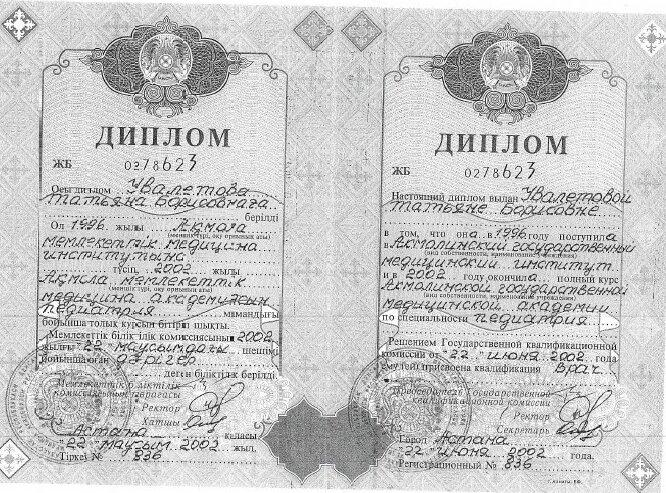 ДИПЛОМ
ЖБ 0278623
Осы диплом Увалетова
Татьяна Борисовнаға
берілді
Ол 1996 жылы Ақмола
(меншік түрі, оқу орнының аты)
мемлекеттік медицина
институтына
түсіп, 2002 жылы
Ақмола мемлекеттік
(меншік түрі, оқу орнының аты)
медицина академиясын
педиатрия мамандығы
бойынша толық курсын бітіріп шықты.
Мемлекеттік білік тілік комиссиясының 2002
жылғы "22" маусымдағы шешімі
бойынша оған дәрігер
деген біліктілік берілді.
Мемлекеттік біліктілік
комиссиясының төрағасы
Ректор
Хатшы
Астана қаласы
"22" маусым 2002 жыл.
Тіркеі № 836
ДИПЛОМ
ЖБ 0278623
Настоящий диплом выдан Увалетовой
Татьяне Борисовне
в том, что она в 1996 году поступила
в Акмолинский государственный
(вид собственности, наименование учреждения)
медицинский институт
и в 2002 году окончила полный курс
Акмолинской государственной
(вид собственности, наименование учреждения)
медицинской академии
по специальности педиатрия
Решением Государственной квалификационной
комиссии от "22" июня 2002 года
ему(ей) присвоена квалификация Врач
Председатель Государственной
квалификационной комиссии
Ректор
Секретарь
Город Астана
"22" июня 2002 года.
Регистрационный № 836